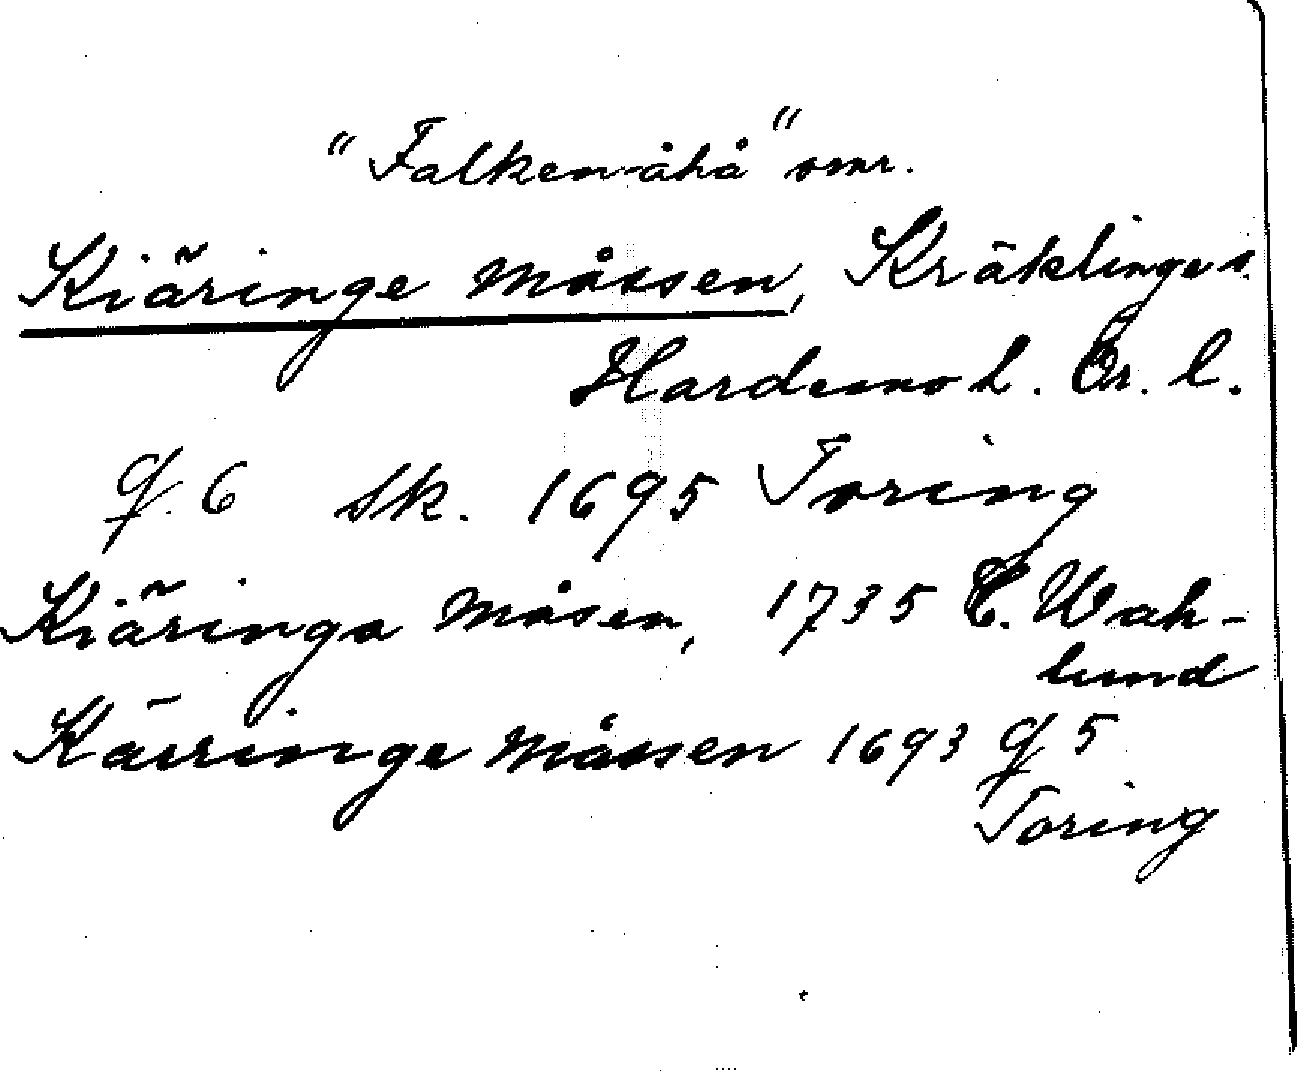 "Falkenåhå" omr.
Kiäringe Måssen, Kräklinge s.
Hardemo h. Ör. l.
g. 6 sk. 1695 Toring
Kiäringa Måsen, 1735 C. Wah-
lund
Käringe Måssen 1693 g 5
Toring